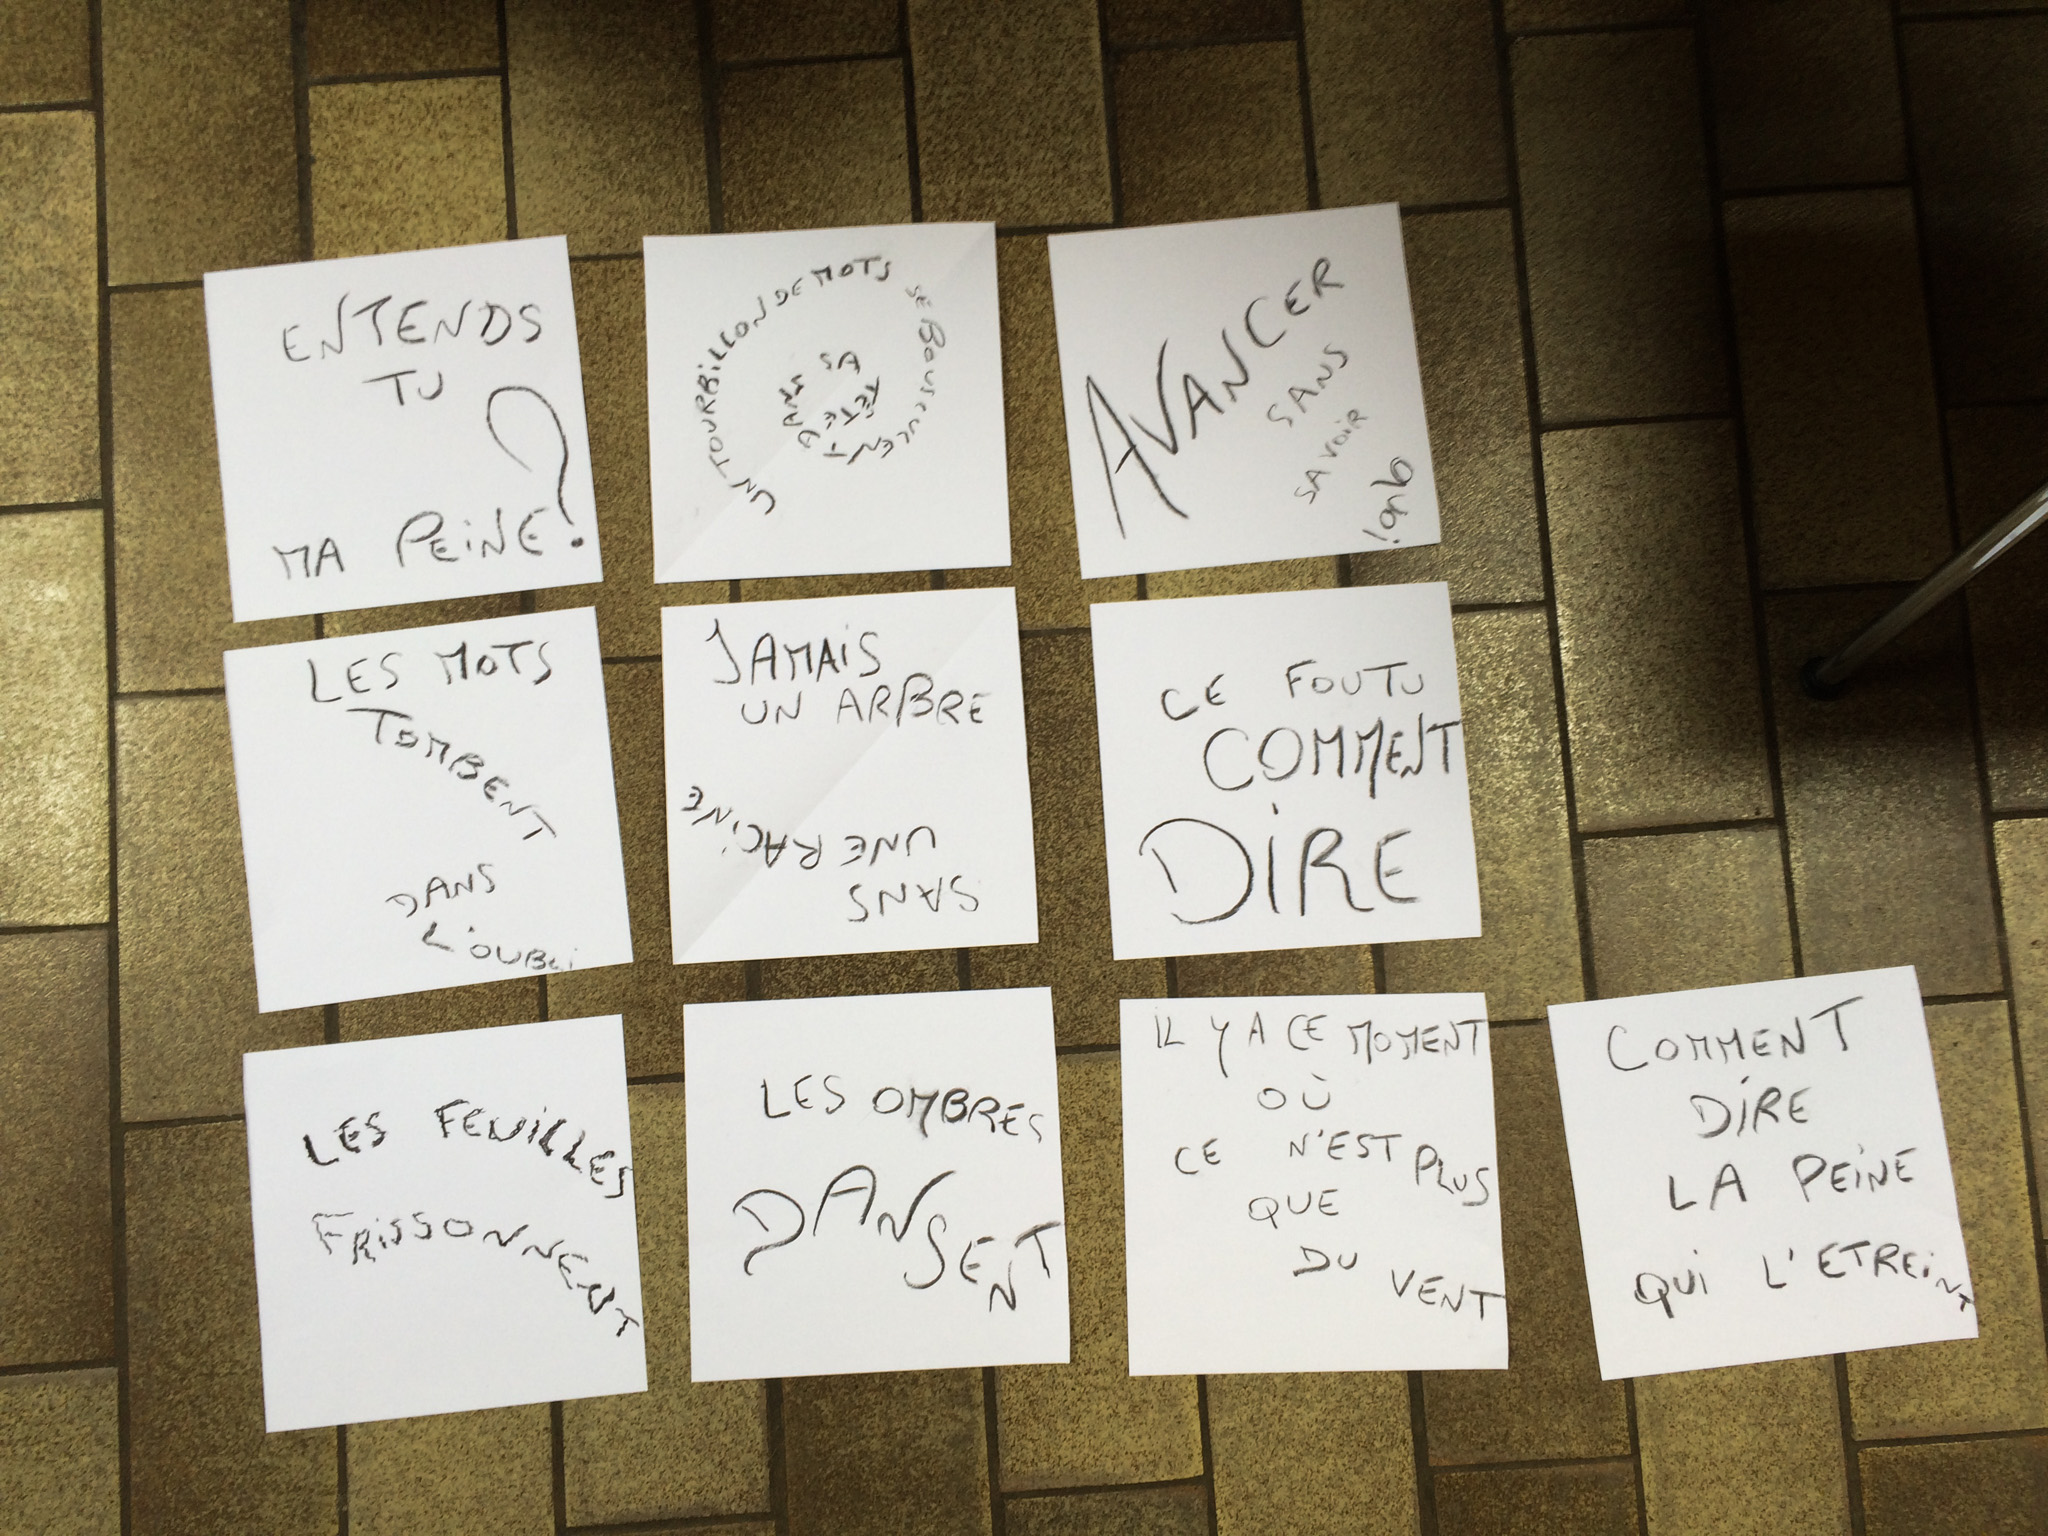 ENTENDS
TU
MA PEINE?
UN TOURBILLON DE MOTS SE BOUSCULENT DANS SA TÊTE
AVANCER
SANS
SAVOIR
où!
LES MOTS
TOMBENT
DANS
L'OUBLI
JAMAIS
UN ARBRE
SANS
UNE RACINE
CE FOUTU
COMMENT
DIRE
LES FEUILLES
FRISSONNENT
LES OMBRES
DANSENT
IL Y A CE MOMENT
OÙ
CE N'EST PLUS
QUE
DU VENT
COMMENT
DIRE
LA PEINE
QUI L'ETREINT